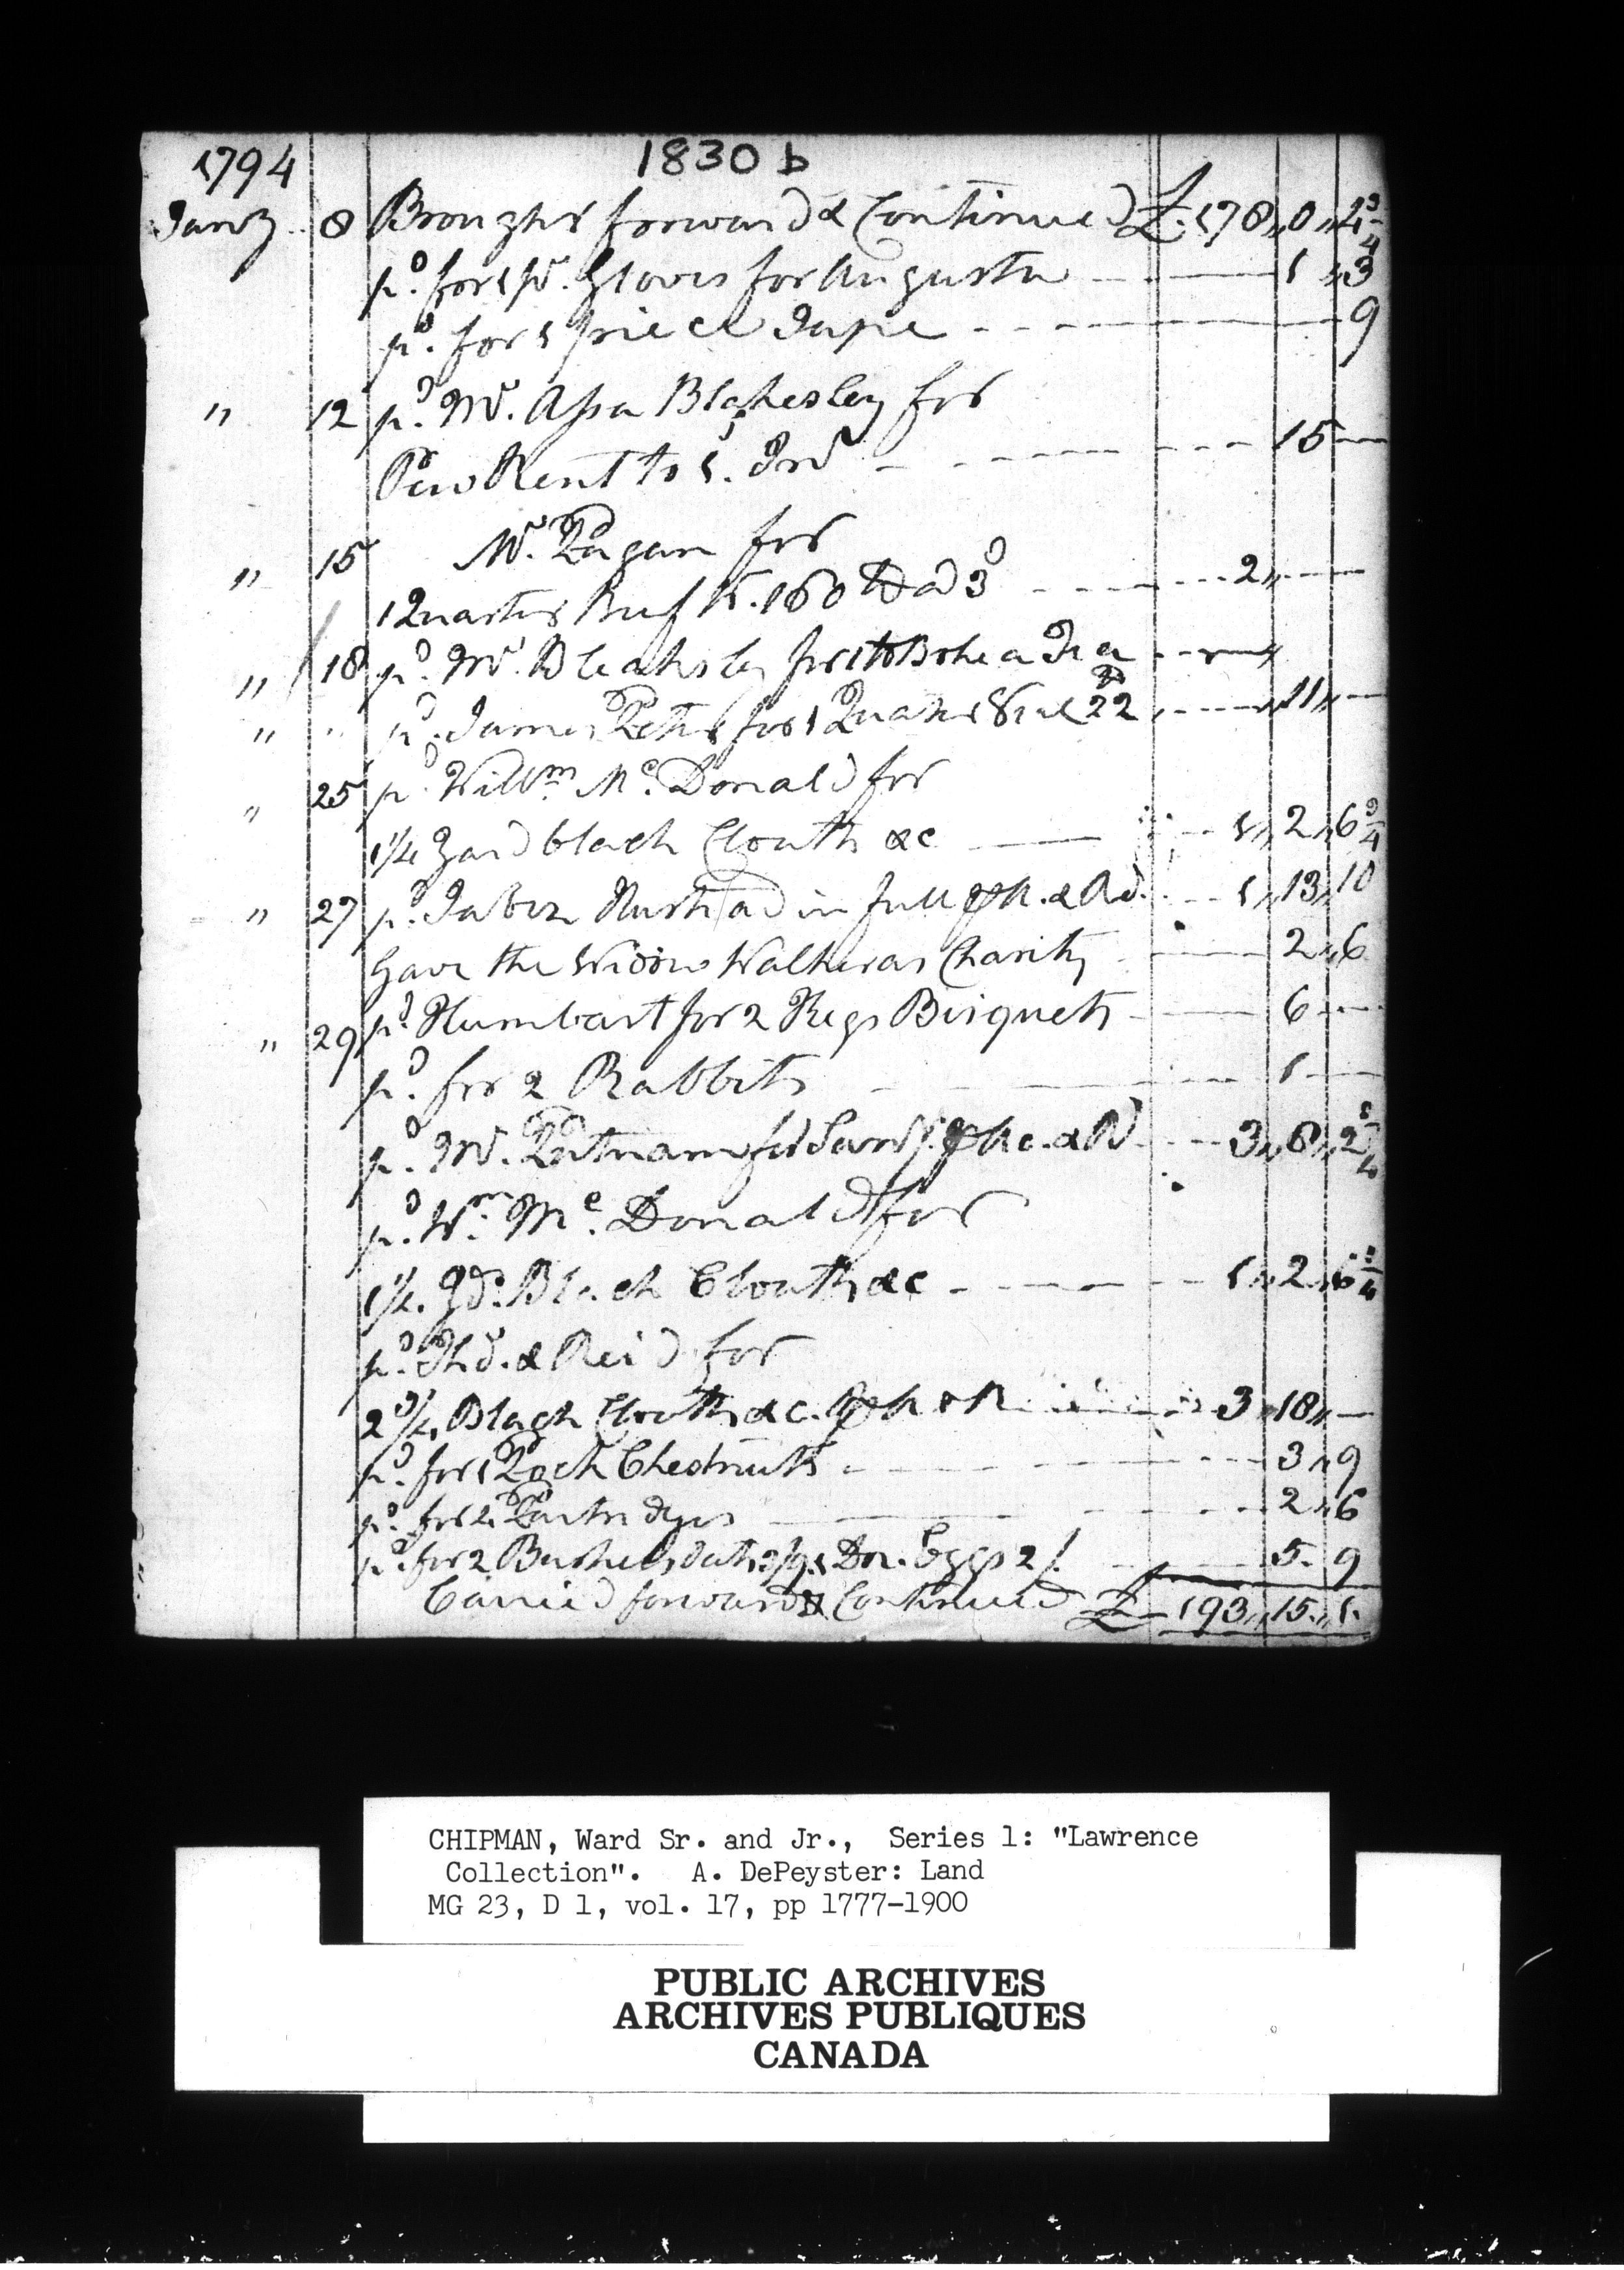 1794 1830 b
Janry 8 Brought forward & Continued £ 178,, 0,, 4 3/4
pd. for 1 pr. Gloves for Augusta 1,, 3
pd. for 1 piece Tape 9
,, 12 pd. Mr. Assa Blakesley for
Pew Rent to 1. 15 —
,, 15 Mr. Pagan for
1 Quarter Beef 160 lb a 3d 2,, —
,, 18 pd Mr. Bleaksley for 1 lb Bohea Tea
,, ,, pd. James Peter for 1 Quarter 22 11,, —
,, 25 pd Willm. Mc. Donald for
1 1/4 Yard black Clouth &c 1,, 2,, 6 3/4
,, 27 pd. Jabez in full 1,, 13,, 10
Gave the Widow Walker as Charity 2,, 6
,, 29 pd. Humbart for 2 Kegs Bisquets 6 —
pd. for 2 Rabbits 1 —
pd. Mr. Putnam for 3,, 8,, 2
pd. Wm. Mc. Donald for
1 1/4. Yd. Black Clouth &c 1,, 2,, 6 3/4
pd. & Reid for
2 3/4 Black Clouth &c. 3,, 18,, —
pd. for 1 Pack Chestnuts 3,, 9
pd. for 2 Partridges 2,, 6
pd. for 2 Bushels Oats 3/9. 1 Doz. Eggs 2/. 5. 9
Carried forward & Continued £ 193,, 15,, 1.
CHIPMAN, Ward Sr. and Jr., Series 1: "Lawrence
Collection". A. DePeyster: Land
MG 23, D 1, vol. 17, pp 1777-1900
PUBLIC ARCHIVES
ARCHIVES PUBLIQUES
CANADA